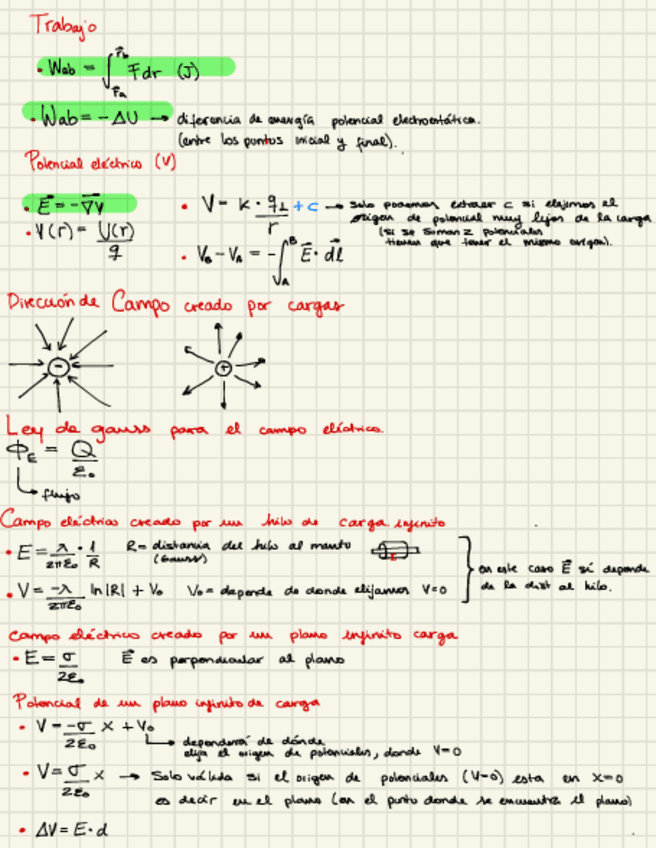 Trabajo
• Wab = ∫_{r̄a}^{r̄b} F̄dr (J)
• Wab = -ΔU → diferencia de energía potencial electrostática.
(entre los puntos inicial y final).
Potencial eléctrico (V)
• E⃗ = -∇⃗V
• V(r) = U(r)/q
• V = K · q1/r + c → solo podemos extraer c si elejimos el
origen de potencial muy lejos de la carga
(si se suman 2 potenciales
tienen que tener el mismo origen).
• V_B - V_A = -∫_A^B E⃗ · dl⃗
Dirección de Campo creado por cargas
- +
Ley de gauss para el campo eléctrico.
Φ_E = Q/ε₀
↳ flujo
Campo eléctrico creado por un hilo de carga infinito
• E = λ/2πε₀ · 1/R R = distancia del hilo al manto
(Gauss)
• V = -λ/2πε₀ ln|R| + V₀ V₀ = depende de donde elijamos V=0
en este caso E⃗ sí depende
de la dist al hilo.
campo eléctrico creado por un plano infinito carga
• E = σ/2ε₀ E⃗ es perpendicular al plano
Potencial de un plano infinito de carga
• V = -σ/2ε₀ x + V₀
↳ dependerá de dónde
elija el origen de potenciales, donde V=0
• V = σ/2ε₀ x → Solo válida si el origen de potenciales (V=0) esta en x=0
es decir en el plano (en el punto donde se encuentra el plano)
• ΔV = E·d